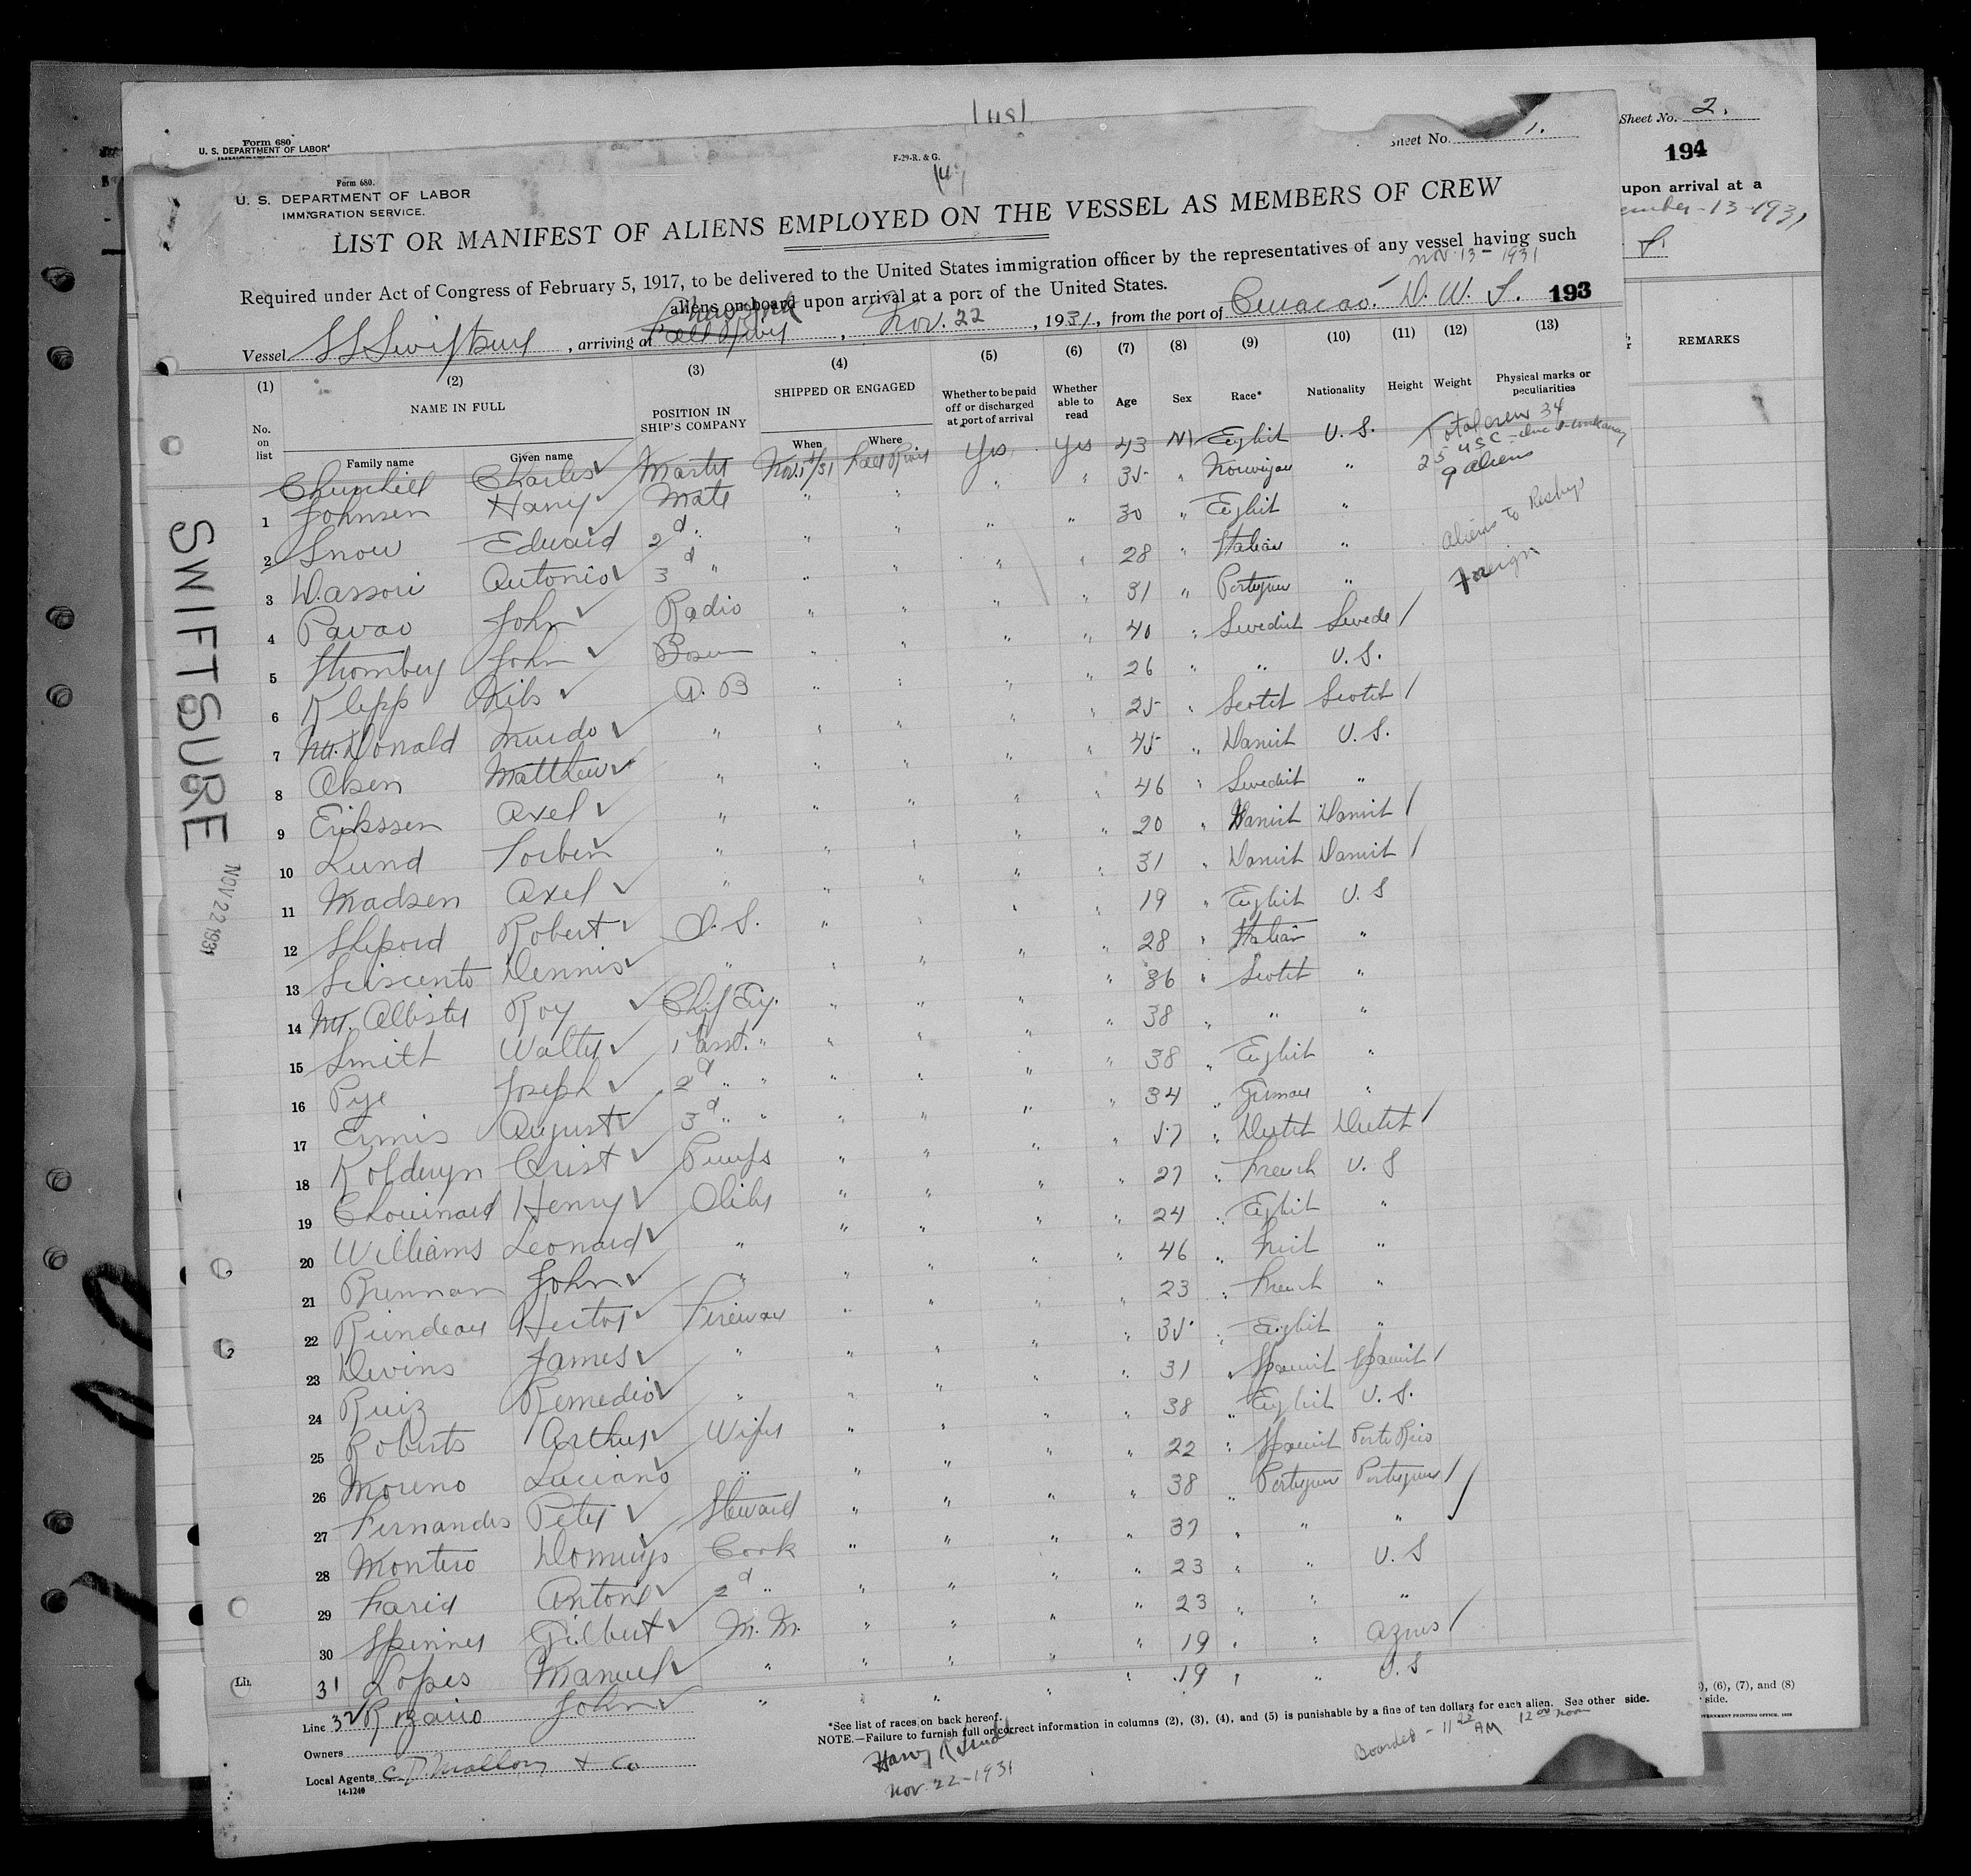 Form 680
U. S. DEPARTMENT OF LABOR
Sheet No. 2.
194
upon arrival at a
-13-1931
REMARKS
Sheet No. 1.
F-29-R. & G.
Form 680.
U. S. DEPARTMENT OF LABOR
IMMIGRATION SERVICE.
LIST OR MANIFEST OF ALIENS EMPLOYED ON THE VESSEL AS MEMBERS OF CREW
Required under Act of Congress of February 5, 1917, to be delivered to the United States immigration officer by the representatives of any vessel having such
aliens on board upon arrival at a port of the United States.
Nov. 13 - 1931
Vessel SS Swiftsure, arriving at Fall River, Nov. 22, 1931, from the port of Curacao. D. W. I. 193
(1) (2) (3) (4) (5) (6) (7) (8) (9) (10) (11) (12) (13)
No. on list NAME IN FULL POSITION IN SHIP'S COMPANY SHIPPED OR ENGAGED Whether to be paid off or discharged at port of arrival Whether able to read Age Sex Race* Nationality Height Weight Physical marks or peculiarities
Family name Given name When Where
Churchill Charles Master Nov. 1/31 Fall River Yes Yes 43 M English U. S. Total crew 34
1 Johnsen Harry Mate " " " " 35 " Norwegian " 25 USC
9 aliens
2 Snow Edward 2d " " " " " 30 " English "
3 Dassori Antonio 3d " " " " " 28 " Italian " Aliens to Reship
4 Pavao John Radio " " " " 31 " Portuguese " Foreign
5 Stromberg John Bosun " " " " 40 " Swedish Swede /
6 Klepp Nils A. B " " " " 26 " " U. S.
7 McDonald Murdo " " " " " 25 " Scotch Scotch /
8 Olsen Matthew " " " " " 45 " Danish U. S.
9 Erikssen Axel " " " " " 46 " Swedish "
10 Lund Torben " " " " " 20 " Danish Danish /
11 Madsen Axel " " " " " 31 " Danish Danish /
12 Shepord Robert O. S. " " " " 19 " English U. S
13 Suscento Dennis " " " " " 28 " Italian "
14 Mc. Allister Roy Chief Eng. " " " " 36 " Scotch "
15 Smith Walter 1 asst. " " " " " 38 " " "
16 Pye Joseph 2d " " " " " " 38 " English "
17 Ermis August 3d " " " " " " 34 " German "
18 Kolderyn Crist Pumps " " " " 57 " Dutch Dutch /
19 Chouinard Henry Oiler " " " " 27 " French U. S
20 Williams Leonard " " " " " 24 " English "
21 Brennan John " " " " " 46 " Irish "
22 Rundeau Hector Fireman " " " " 23 " French "
23 Devins James " " " " " 35 " English "
24 Ruiz Remedio " " " " " 31 " Spanish Spanish /
25 Roberts Arthur Wiper " " " " 38 " English U. S.
26 Moreno Luciano " " " " " 22 " Spanish Porto Rico
27 Fernandes Peter Steward " " " " 38 " Portuguese Portuguese /
28 Montero Domingo Cook " " " " 37 " " " /
29 Faria Antone 2d " " " " " 23 " " U. S
30 Spinner Gilbert M. M. " " " " 23 " " "
31 Lopes Manuel " " " " " 19 " " Azores /
32 Rozario John " " " " " 19 " " U. S
Line
Owners
Local Agents C. D. Mallory & Co
14-1240
*See list of races on back hereof.
NOTE.—Failure to furnish full or correct information in columns (2), (3), (4), and (5) is punishable by a fine of ten dollars for each alien. See other side.
Nov. 22-1931
Boarded - 11 22 AM 12 00 noon
SWIFTSURE
NOV 22 1931
(6), (7), and (8)
side.
GOVERNMENT PRINTING OFFICE